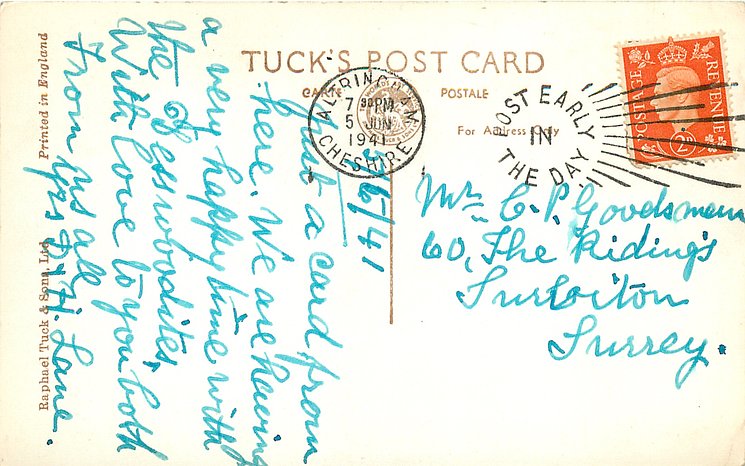 TUCK'S POST CARD
CARTE POSTALE
For Address Only
ALTRINCHAM
7 30 PM
5 JUN
1941
CHESHIRE
POST EARLY
IN
THE DAY
POSTAGE
REVENUE
2D
5/6/41
Just a card from
here. We are having
a very happy time with
the
With love to you both
From us all
Lane.
Mrs C. P. Goodsman
60, The Ridings
Surbiton
Surrey.
Printed in England
Raphael Tuck & Sons, Ltd